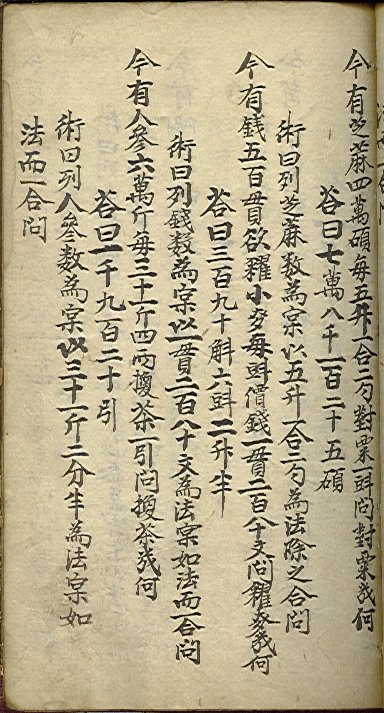 今有芝蔴四萬碩每五升一合二勺對粟一㪷問對粟幾何
荅曰七萬八千一百二十五碩
術曰列芝蔴數為宲以五升一合二勺為法除之合問
今有錢五百貫欲糴小麥每㪷價錢一貫二百八十文問糴麥幾何
荅曰三百九十斛六㪷二升半
術曰列錢數為宲以一貫二百八十文為法宲如法而一合問
今有人參六萬斤每三十一斤四兩換茶一引問換茶幾何
荅曰一千九百二十引
術曰列人參數為宲以三十一斤二分半為法宲如
法而一合問